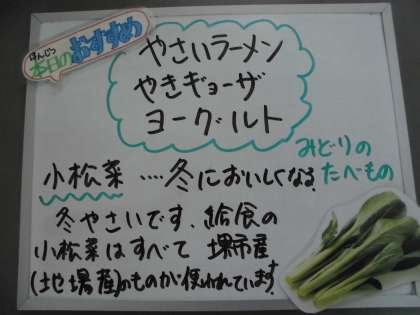 ほんじつ
本日のおすすめ
やさいラーメン
やきギョーザ
ヨーグルト
みどりの
たべもの
小松菜 ‥‥冬においしくなる
冬やさいです、給食の
小松菜はすべて 堺市産
(地場産)のものが使われています